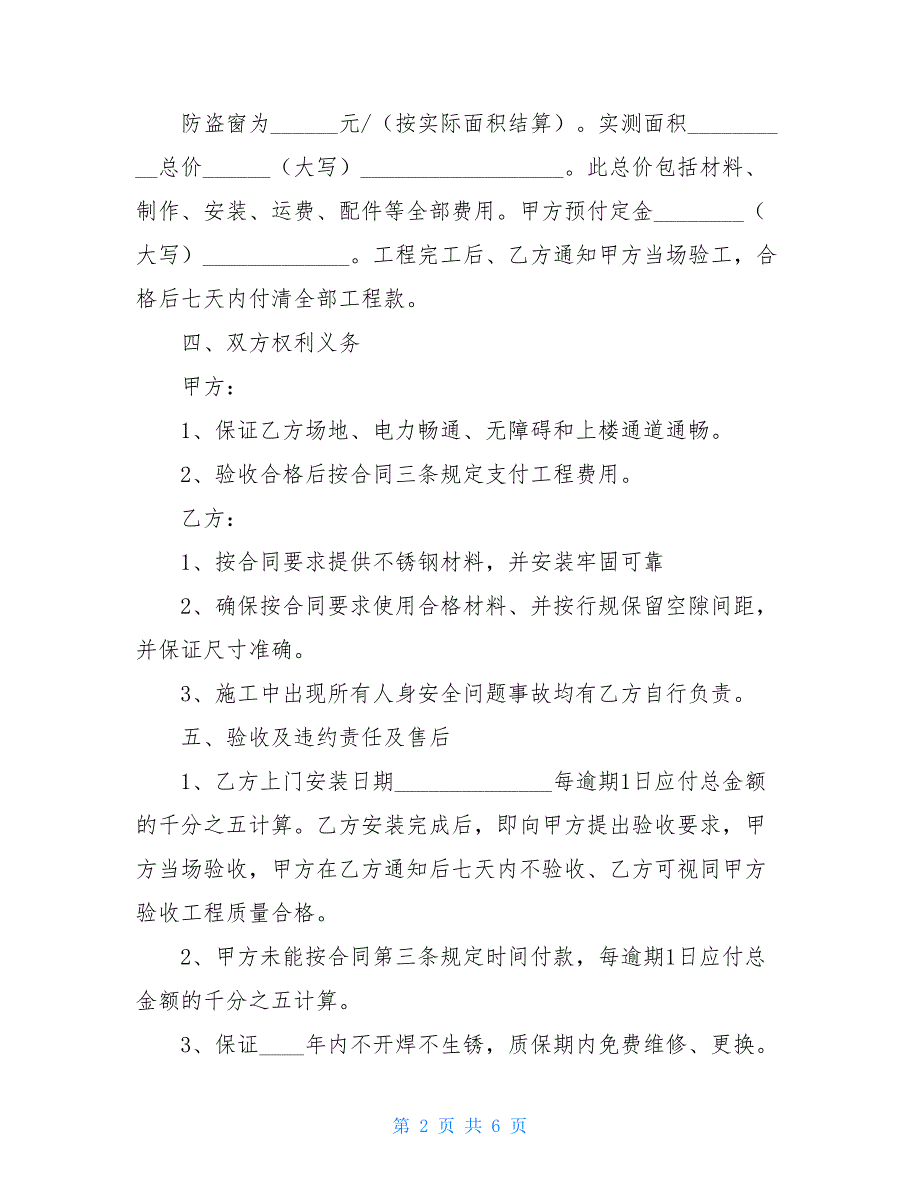 防盗窗为______元/（按实际面积结算）。实测面积________
__总价______（大写）__________________。此总价包括材料、
制作、安装、运费、配件等全部费用。甲方预付定金________（
大写）_____________。工程完工后、乙方通知甲方当场验工，合
格后七天内付清全部工程款。
四、双方权利义务
甲方：
1、保证乙方场地、电力畅通、无障碍和上楼通道通畅。
2、验收合格后按合同三条规定支付工程费用。
乙方：
1、按合同要求提供不锈钢材料，并安装牢固可靠
2、确保按合同要求使用合格材料、并按行规保留空隙间距，
并保证尺寸准确。
3、施工中出现所有人身安全问题事故均有乙方自行负责。
五、验收及违约责任及售后
1、乙方上门安装日期______________每逾期1日应付总金额
的千分之五计算。乙方安装完成后，即向甲方提出验收要求，甲
方当场验收，甲方在乙方通知后七天内不验收、乙方可视同甲方
验收工程质量合格。
2、甲方未能按合同第三条规定时间付款，每逾期1日应付总
金额的千分之五计算。
3、保证____年内不开焊不生锈，质保期内免费维修、更换。
第 2 页 共 6 页